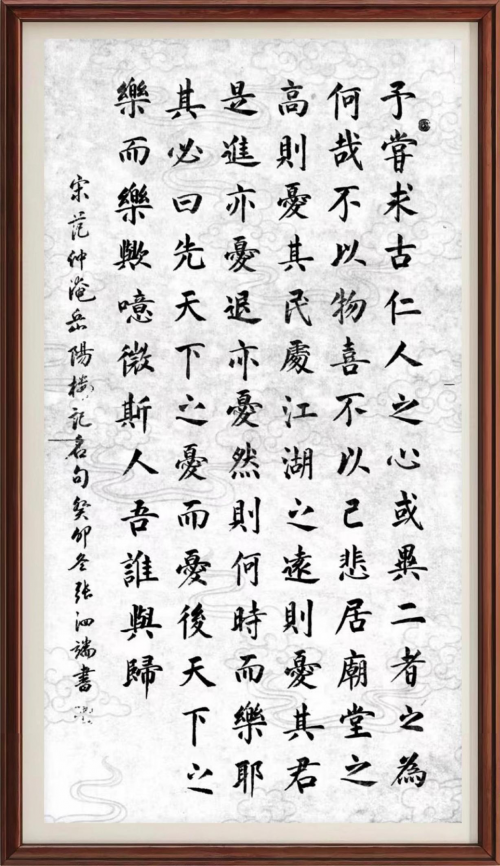 予嘗求古仁人之心或異二者之為
何哉不以物喜不以己悲居廟堂之
高則憂其民處江湖之遠則憂其君
是進亦憂退亦憂然則何時而樂耶
其必曰先天下之憂而憂後天下之
樂而樂歟噫微斯人吾誰與歸
宋范仲淹岳陽樓記名句癸卯冬張泗端書